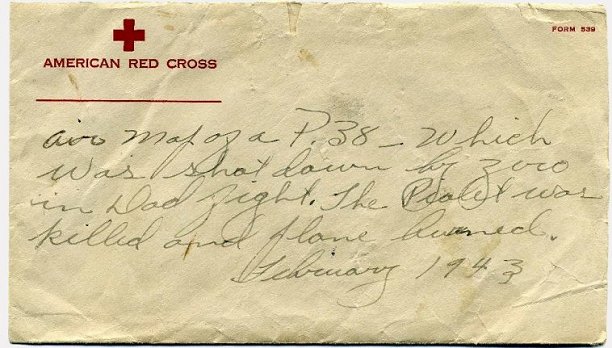 FORM 539
AMERICAN RED CROSS
air Map of a P.38 - Which
was shot down by zero
in Dad fight. The was
killed and plane burned.
February 1943